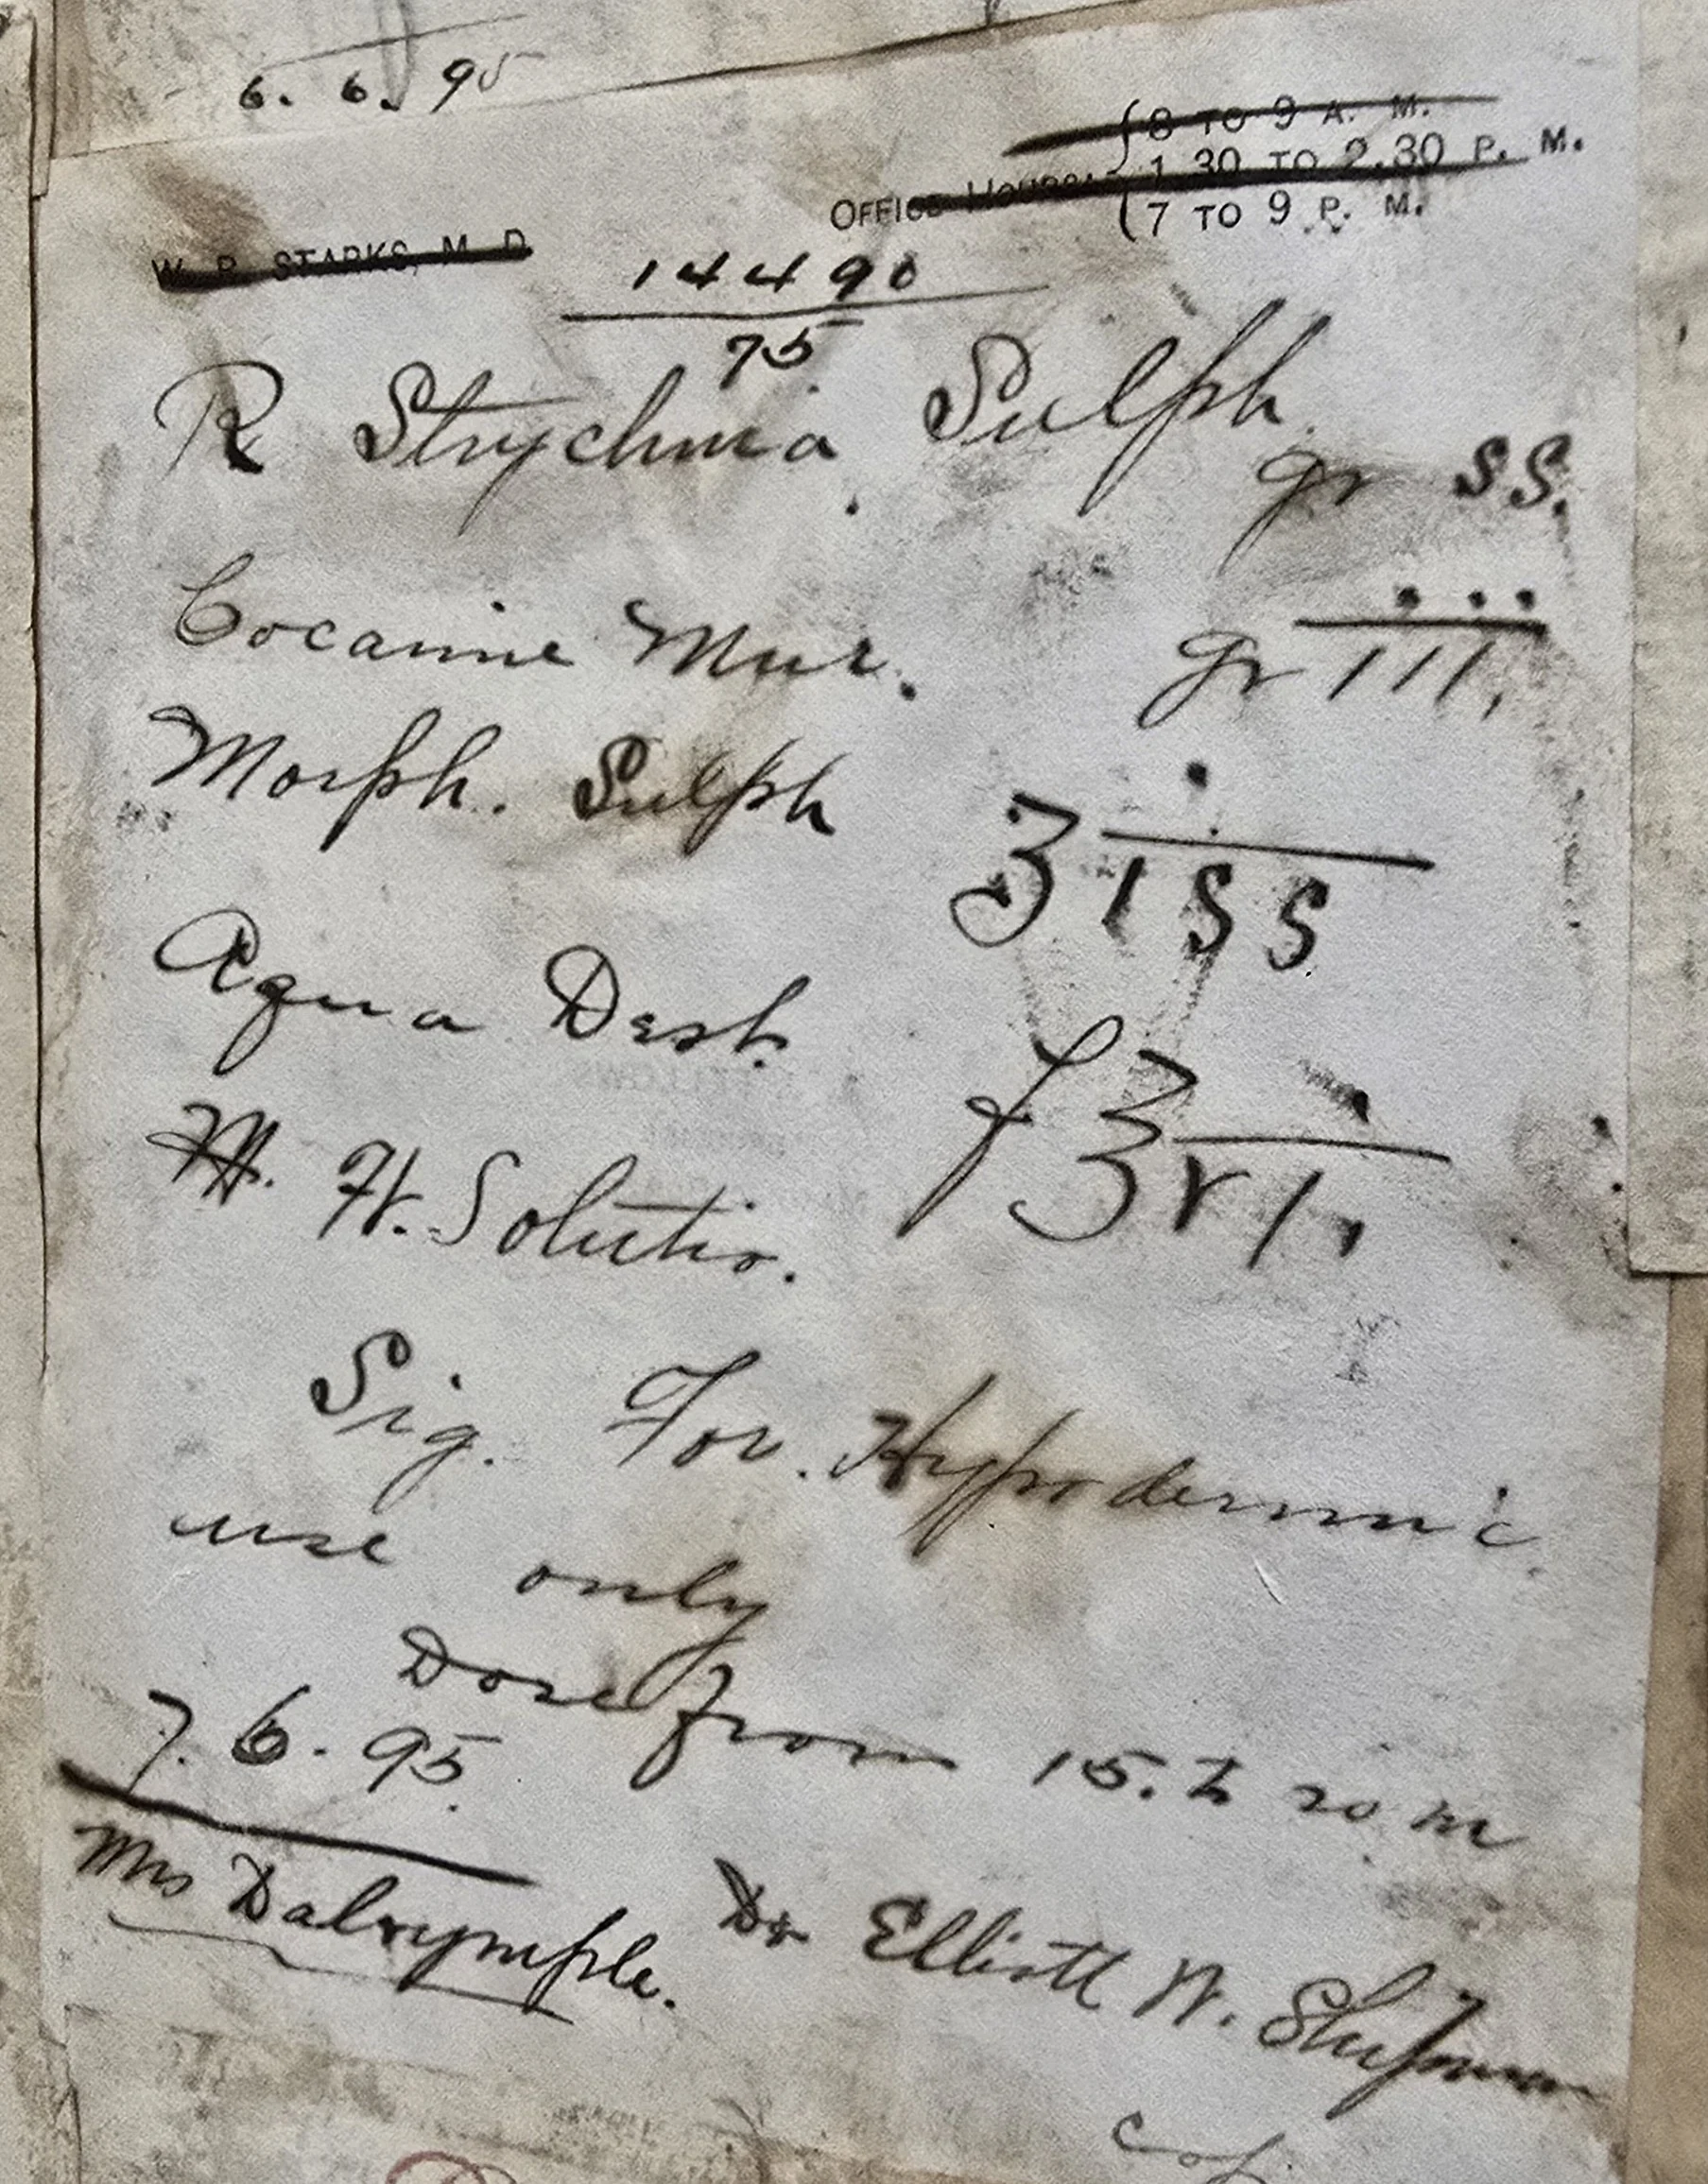 6. 6. 95
OFFICE HOURS: { 8 TO 9 A. M.
1.30 TO 2.30 P. M.
7 TO 9 P. M.
W. P. STARKS, M. D.
14490
75
℞ Strychnia Sulph.
gr ss.
Cocaine Mur. gr iii.
Morph. Sulph ʒiss
Aqua Dest. fʒvi.
M. Ft. Solutio.
Sig. For Hypodermic
use only
Dose from 15. to 20 m
7. 6. 95.
Mrs Dalrymple. Dr Elliott W. Shipman